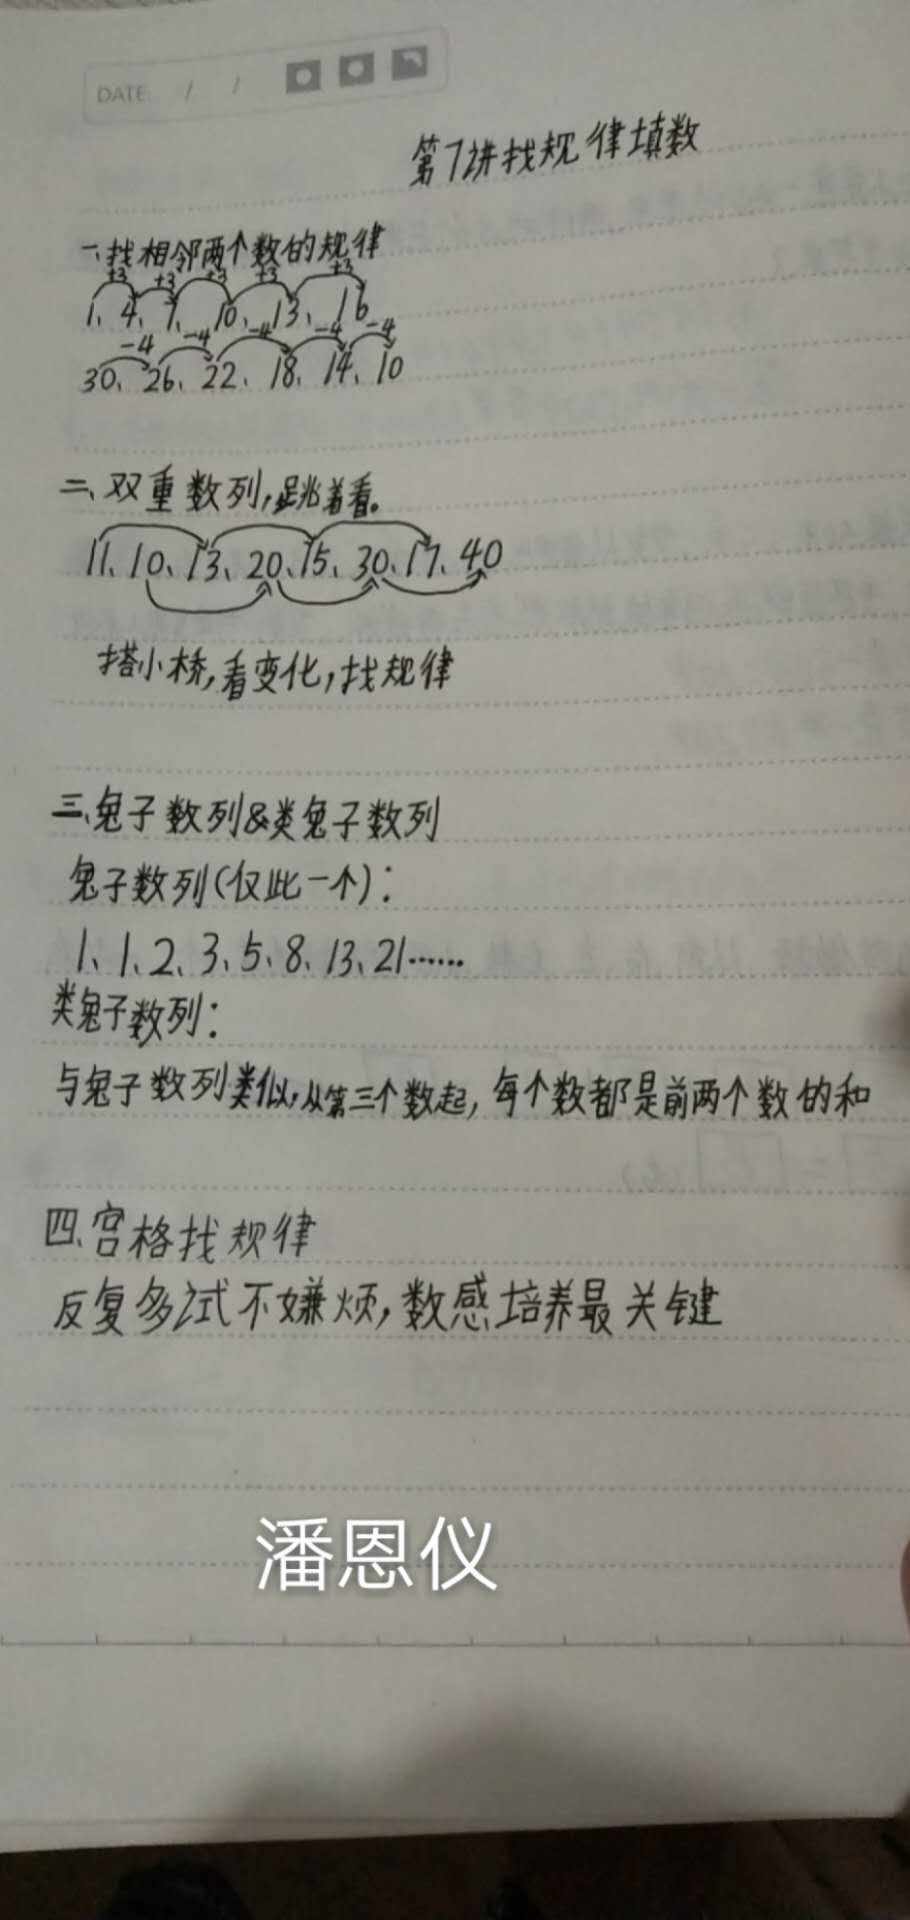 DATE: / /
第7讲找规律填数
一、找相邻两个数的规律
+3 +3 +3 +3 +3
1、4、7、10、13、16
-4 -4 -4 -4 -4
30、26、22、18、14、10
二、双重数列,跳着看。
11、10、13、20、15、30、17、40
搭小桥,看变化,找规律
三、兔子数列&类兔子数列
兔子数列(仅此一个):
1、1、2、3、5、8、13、21……
类兔子数列:
与兔子数列类似,从第三个数起,每个数都是前两个数的和
四、宫格找规律
反复多试不嫌烦,数感培养最关键
潘恩仪